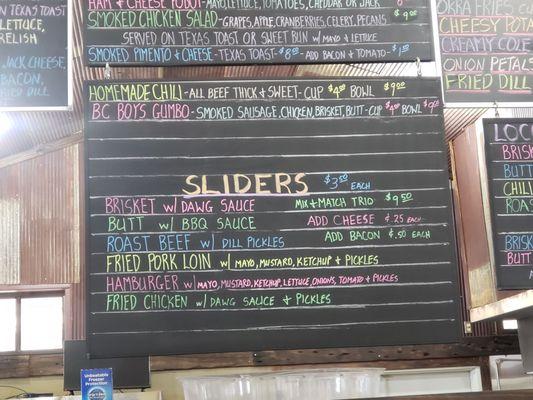 W/ LETTUCE,
RELISH
JACK CHEESE
BACON,
DILL
HAM & CHEESE PO'BOY - MAYO, LETTUCE, TOMATOES, CHEDDAR OR JACK
SMOKED CHICKEN SALAD - GRAPES, APPLE, CRANBERRIES, CELERY, PECANS $9.00
SERVED ON TEXAS TOAST OR SWEET BUN W/ MAYO & LETTUCE
SMOKED PIMENTO & CHEESE - TEXAS TOAST - $8.00 ADD BACON & TOMATO - $1.50
OKRA FRIES,
CHEESY POTA
CREAMY COLE
ONION PETALS
FRIED DILL
HOMEMADE CHILI - ALL BEEF THICK & SWEET - CUP $4.50 BOWL $9.00
BC BOYS GUMBO - SMOKED SAUSAGE, CHICKEN, BRISKET, BUTT - CUP $4.50 BOWL $9.00
SLIDERS $3.50 EACH
BRISKET W/ DAWG SAUCE MIX + MATCH TRIO $9.50
BUTT W/ BBQ SAUCE ADD CHEESE $.25 EACH
ROAST BEEF W/ DILL PICKLES ADD BACON $.50 EACH
FRIED PORK LOIN W/ MAYO, MUSTARD, KETCHUP & PICKLES
HAMBURGER W/ MAYO, MUSTARD, KETCHUP, LETTUCE, ONIONS, TOMATO & PICKLES
FRIED CHICKEN W/ DAWG SAUCE & PICKLES
LOC
BRISK
BUTT
CHILI
ROAS
BRISK
BUTT
Unbeatable
Protection